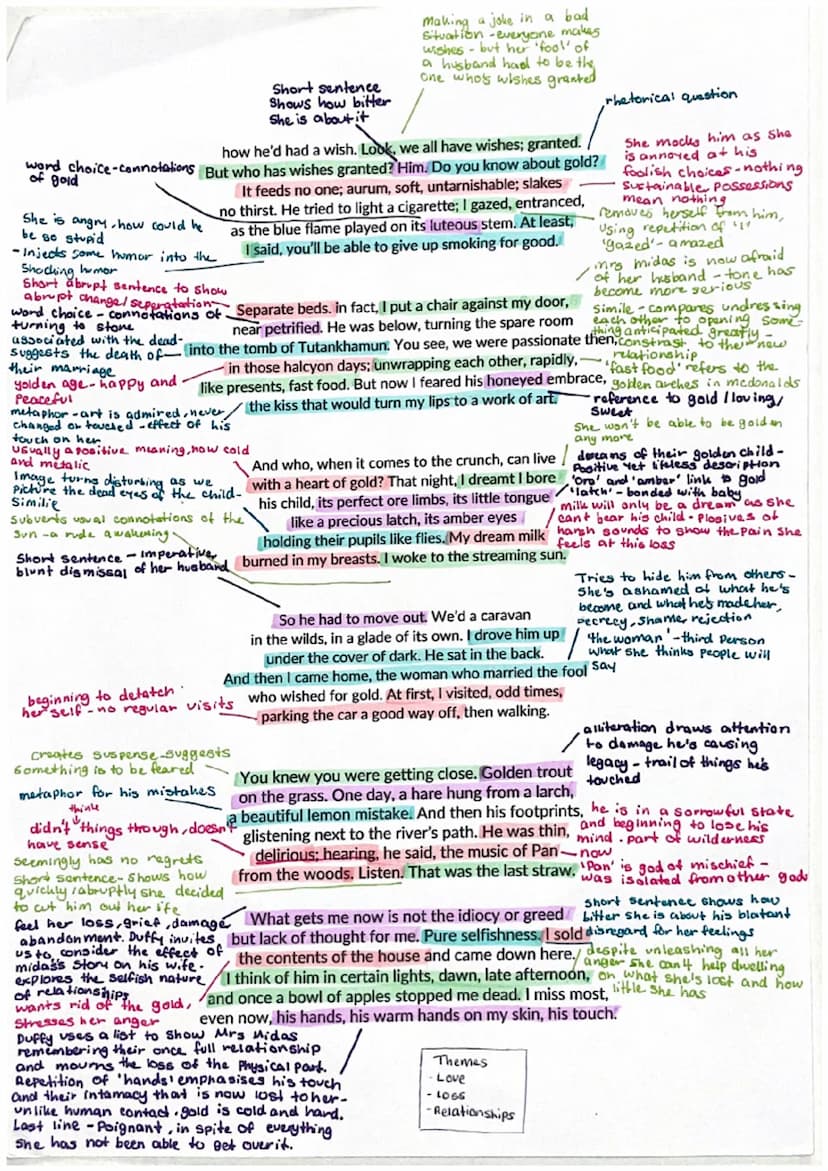 making a joke in a bad
situation - everyone makes
wishes - but her 'fool' of
a husband had to be the
one who's wishes granted
Short sentence
shows how bitter
she is about it
rhetorical question
word choice - connotations
of gold
how he'd had a wish. Look, we all have wishes; granted.
But who has wishes granted? Him. Do you know about gold?
It feeds no one; aurum, soft, untarnishable; slakes
no thirst. He tried to light a cigarette; I gazed, entranced,
as the blue flame played on its luteous stem. At least,
I said, you'll be able to give up smoking for good.
She mocks him as she
is annoyed at his
foolish choices - nothing
sustainable. possessions
mean nothing
removes herself from him,
using repetition of 'I'
'gazed' - amazed
She is angry, how could he
be so stupid
- Injects some humor into the
shocking humor
Short abrupt sentence to show
abrupt change/seperatation
word choice - connotations of
turning to stone
associated with the dead -
suggests the death of
their marriage
golden age - happy and
peaceful
metaphor - art is admired, never
changed or touched - effect of his
touch on her
Mrs midas is now afraid
of her husband - tone has
become more serious
Simile - compares undressing
each other to opening some-
thing anticipated greatly -
constrast to their new
relationship
'fast food' refers to the
golden arches in mcdonalds
reference to gold / loving/
sweet
Separate beds. in fact, I put a chair against my door,
near petrified. He was below, turning the spare room
into the tomb of Tutankhamun. You see, we were passionate then,
in those halcyon days; unwrapping each other, rapidly,
like presents, fast food. But now I feared his honeyed embrace,
the kiss that would turn my lips to a work of art.
usually a positive meaning, now cold
and metalic
Image turns disturbing as we
picture the dead eyes of the child -
Similie
Subverts usual connotations of the
sun - a rude awakening
Short sentence - imperative,
blunt dismissal of her husband
And who, when it comes to the crunch, can live
with a heart of gold? That night, I dreamt I bore
his child, its perfect ore limbs, its little tongue
like a precious latch, its amber eyes
holding their pupils like flies. My dream milk
burned in my breasts. I woke to the streaming sun.
She won't be able to be golden
any more
dreams of their golden child -
Positive yet lifeless description
'Oro' and 'amber' link to gold
'latch' - bonded with baby
milk will only be a dream as she
can't bear his child - Plosives of
harsh sounds to show the pain she
feels at this loss
So he had to move out. We'd a caravan
in the wilds, in a glade of its own. I drove him up
under the cover of dark. He sat in the back.
And then I came home, the woman who married the fool
who wished for gold. At first, I visited, odd times,
parking the car a good way off, then walking.
Tries to hide him from others -
She's ashamed of what he's
become and what he's made her,
secrecy, shame, rejection
'the woman' - third person
what she thinks people will
say
beginning to detatch
herself - no regular visits
alliteration draws attention
to damage he's causing
legacy - trail of things he's
touched
creates suspense - suggests
something is to be feared
metaphor for his mistakes
think
didn't things though, doesn't
have sense
seemingly has no regrets
short sentence - shows how
quickly/abruptly she decided
to cut him out her life
You knew you were getting close. Golden trout
on the grass. One day, a hare hung from a larch,
a beautiful lemon mistake. And then his footprints,
glistening next to the river's path. He was thin,
delirious; hearing, he said, the music of Pan
from the woods. Listen. That was the last straw.
he is in a sorrowful state
and beginning to lose his
mind - part of wilderness
now
'Pan' is god of mischief -
was isolated from other gods
feel her loss, grief, damage,
abandonment. Duffy invites
us to consider the effect of
midas's story on his wife -
explores the selfish nature
of relationships
wants rid of the gold,
stresses her anger
What gets me now is not the idiocy or greed
but lack of thought for me. Pure selfishness. I sold
the contents of the house and came down here.
I think of him in certain lights, dawn, late afternoon,
and once a bowl of apples stopped me dead. I miss most,
even now, his hands, his warm hands on my skin, his touch.
short sentence shows how
bitter she is about his blatant
disregard for her feelings
despite unleashing all her
anger she can't help dwelling
on what she's lost and how
little she has
Duffy uses a list to show Mrs Midas
remembering their once full relationship
and mourns the loss of the physical part.
Repetition of 'hands' emphasises his touch
and their intamacy that is now lost to her -
unlike human contact, gold is cold and hard.
Last line - Poignant, in spite of everything
she has not been able to get over it.
Themes
- Love
- Loss
- Relationships